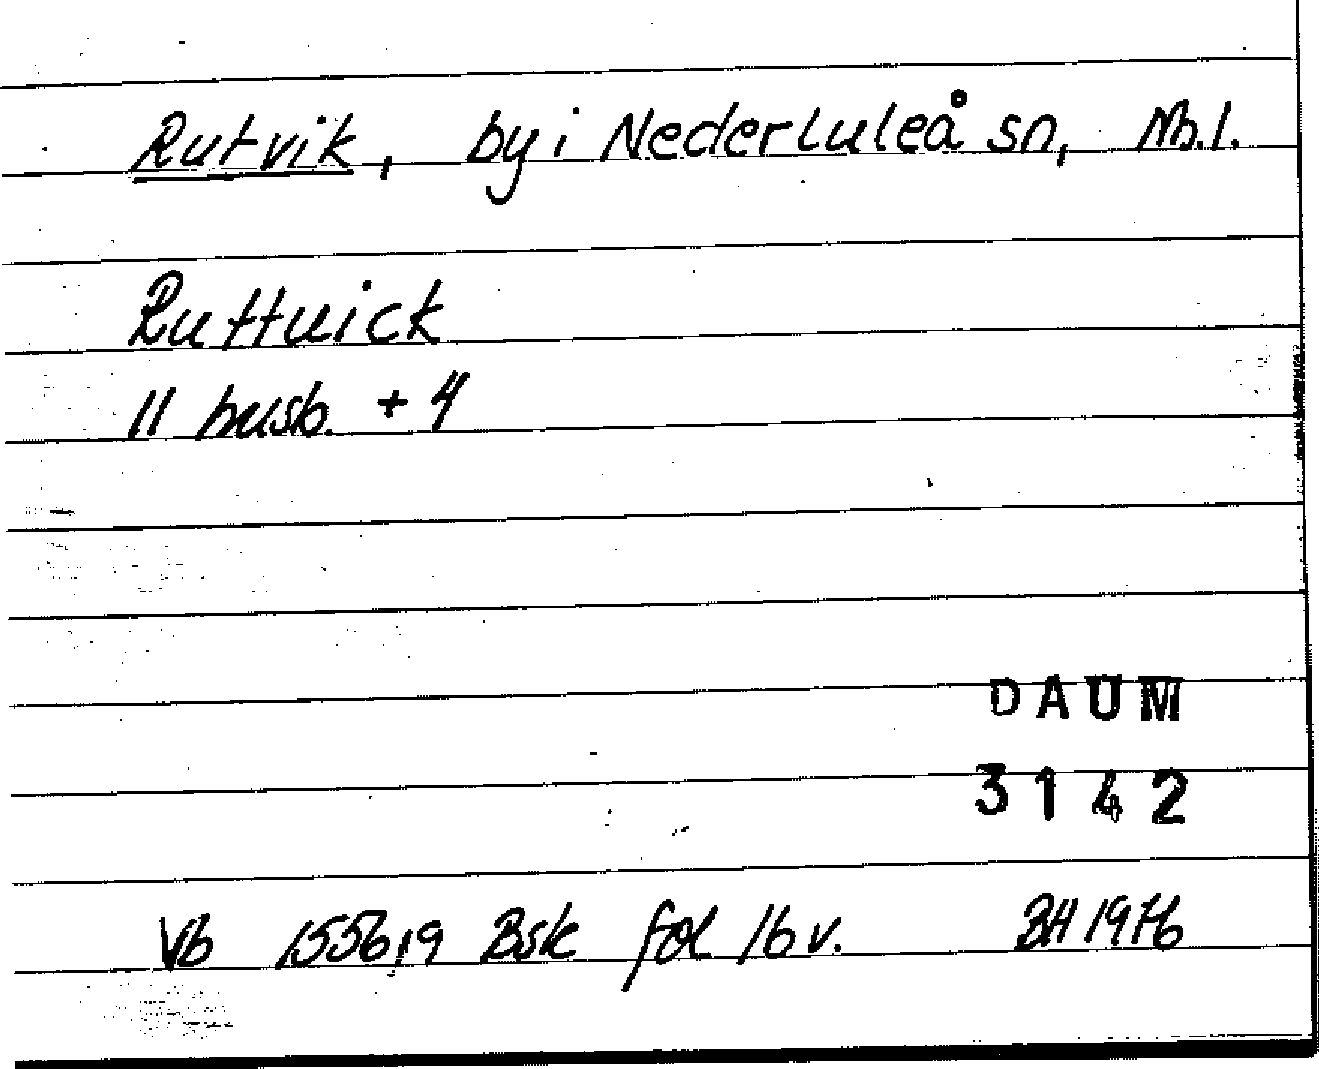 Rutvik, by i Nederluleå sn, Nb.l.
Ruttuick
11 husb. + 4
DAUM
3142
Vb 1556,19 Bsk fol 16 v. BH 1976